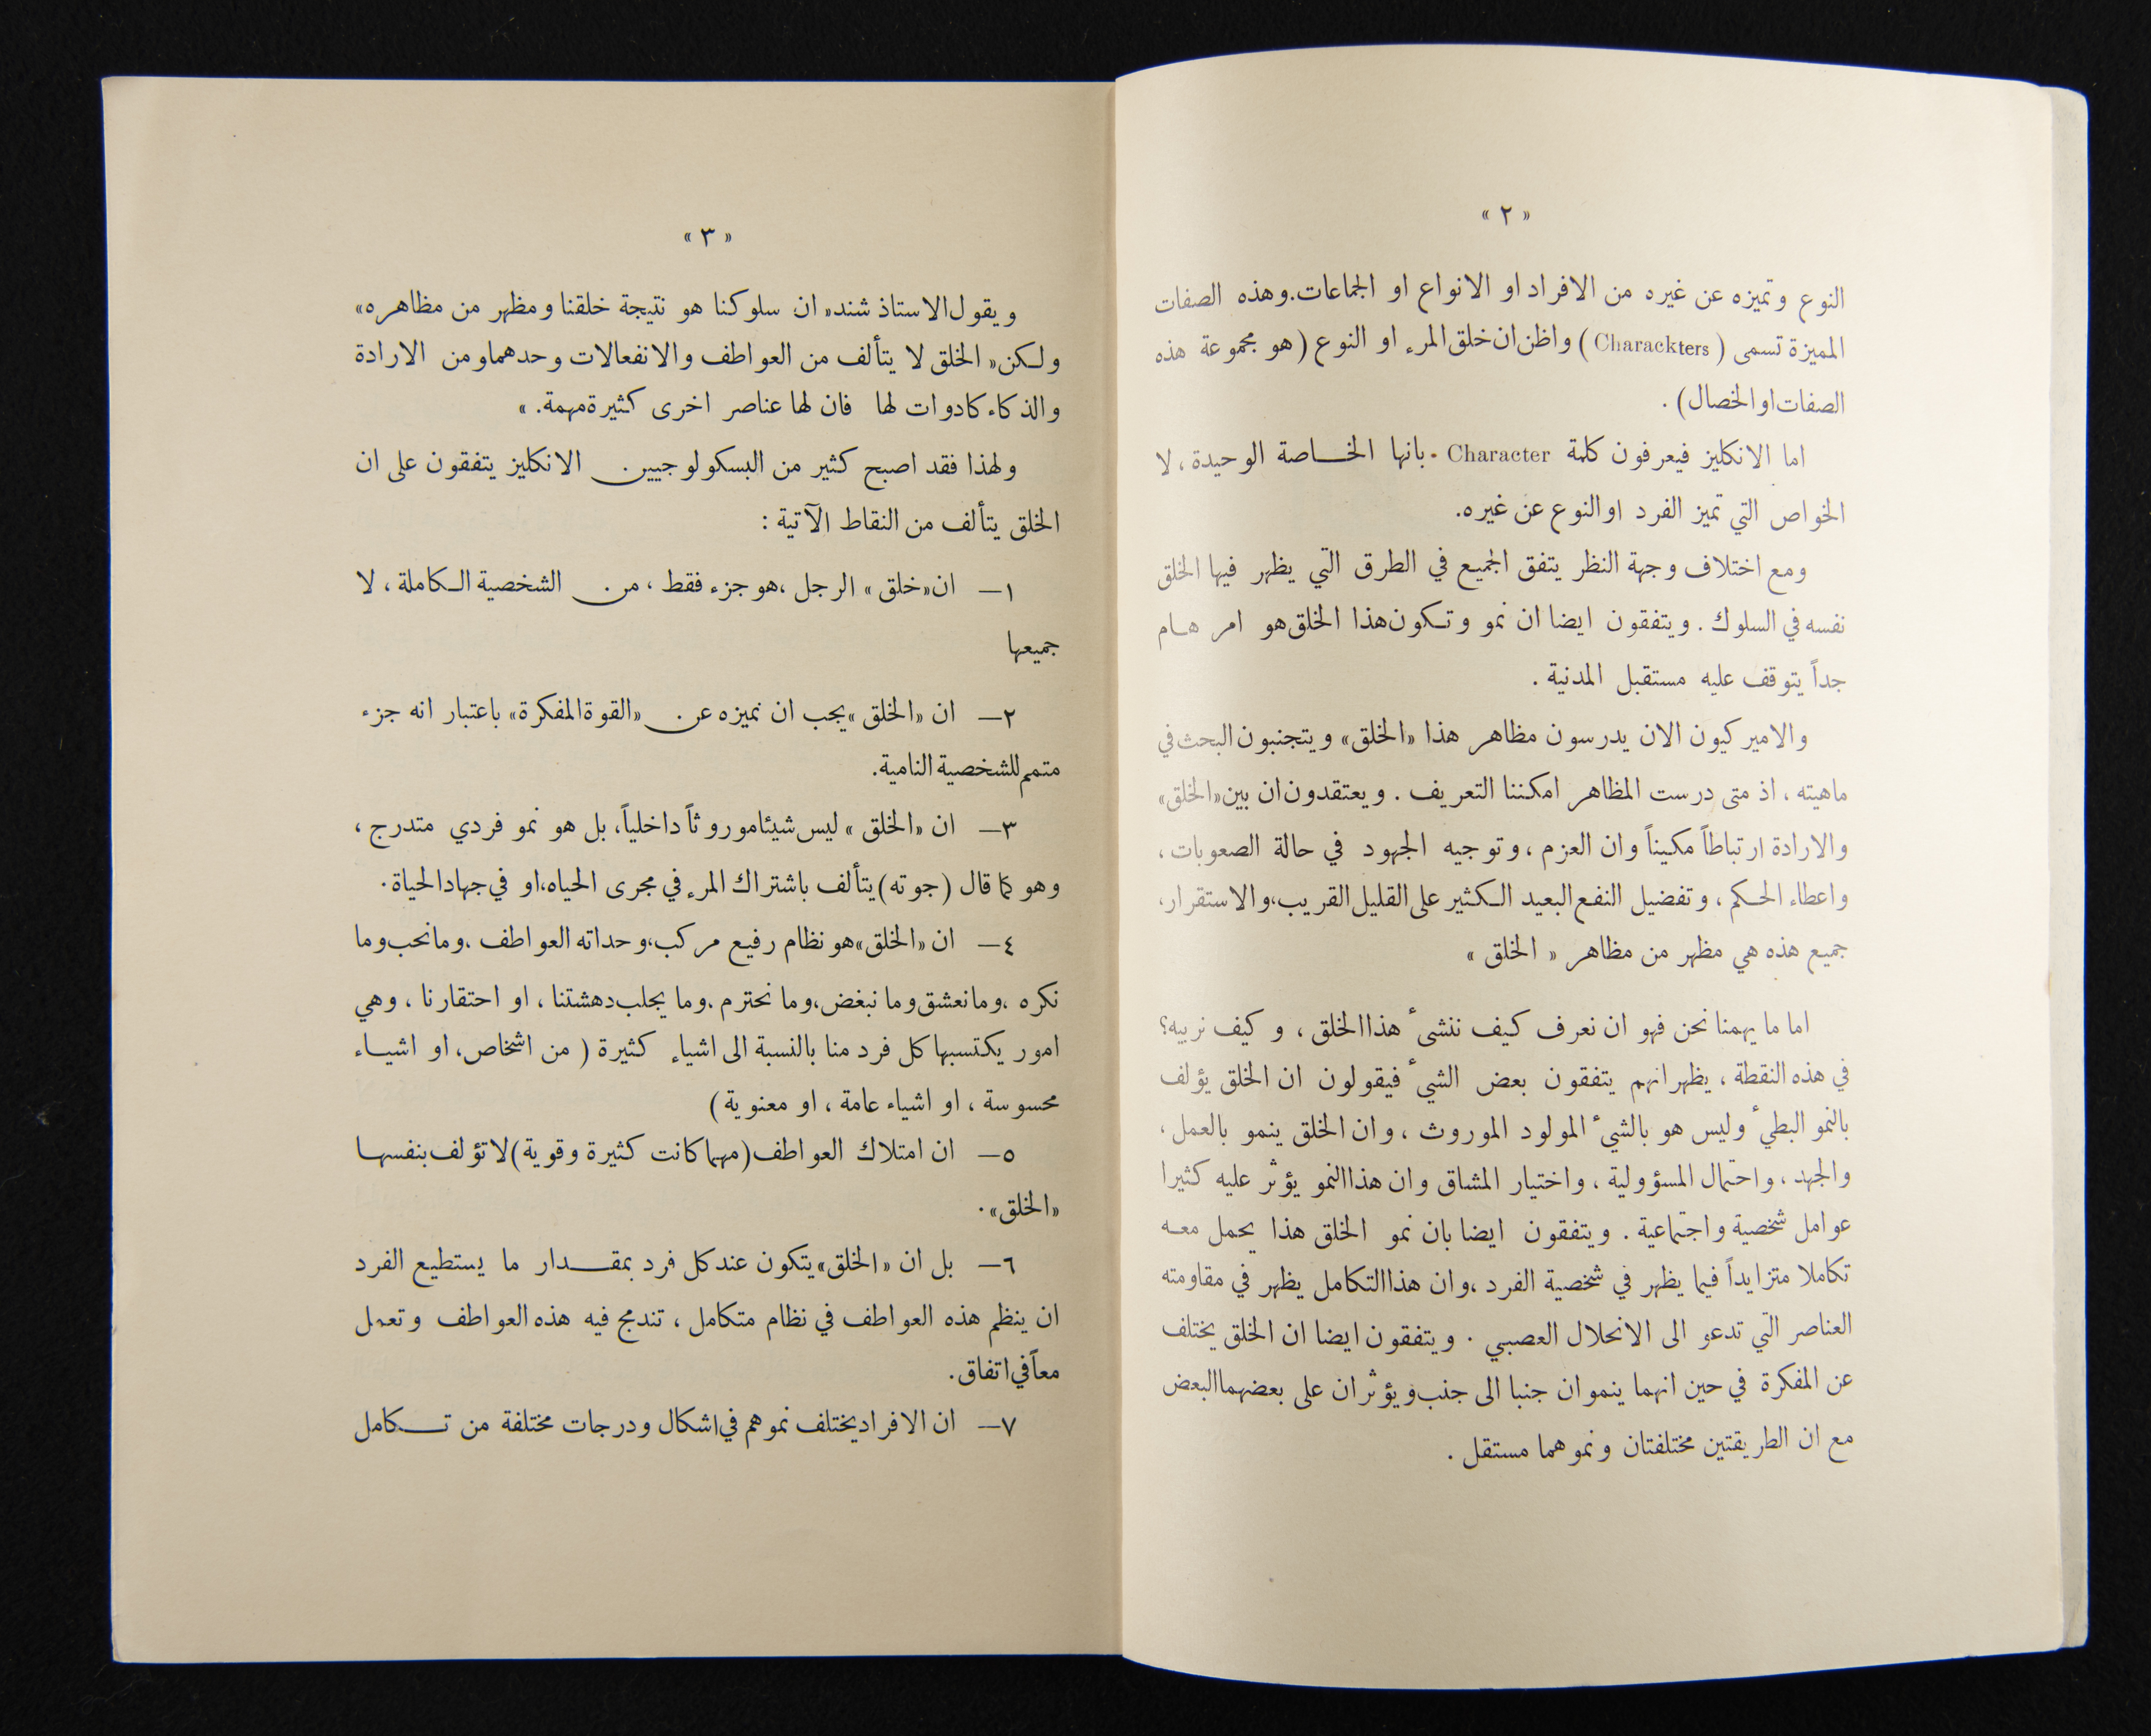 « ٢ »
النوع وتميزه عن غيره من الافراد او الانواع او الجماعات. وهذه الصفات
المميزة تسمى ( Charackters ) واظن ان خلق المرء او النوع ( هو مجموعة هذه
الصفات او الخصال ) .
اما الانكليز فيعرفون كلمة Character - بانها الخاصة الوحيدة ، لا
الخواص التي تميز الفرد او النوع عن غيره.
ومع اختلاف وجهة النظر يتفق الجميع في الطرق التي يظهر فيها الخلق
نفسه في السلوك . ويتفقون ايضا ان نمو وتكون هذا الخلق هو امر هام
جداً يتوقف عليه مستقبل المدنية .
والاميركيون الان يدرسون مظاهر هذا «الخلق» ويتجنبون البحث في
ماهيته ، اذ متى درست المظاهر امكننا التعريف . ويعتقدون ان بين «الخلق»
والارادة ارتباطاً مكيناً وان العزم ، وتوجيه الجهود في حالة الصعوبات ،
واعطاء الحكم ، وتفضيل النفع البعيد الكثير على القليل القريب، والاستقرار،
جميع هذه هي مظهر من مظاهر « الخلق »
اما ما يهمنا نحن فهو ان نعرف كيف ننشىء هذا الخلق ، وكيف نربيه؟
في هذه النقطة ، يظهر انهم يتفقون بعض الشيء فيقولون ان الخلق يؤلف
بالنمو البطيء وليس هو بالشيء المولود الموروث ، وان الخلق ينمو بالعمل ،
والجهد ، واحتمال المسؤولية ، واختيار المشاق وان هذا النمو يؤثر عليه كثيرا
عوامل شخصية واجتماعية . ويتفقون ايضا بان نمو الخلق هذا يحمل معه
تكاملا متزايداً فيما يظهر في شخصية الفرد ، وان هذا التكامل يظهر في مقاومته
العناصر التي تدعو الى الانحلال العصبي . ويتفقون ايضا ان الخلق يختلف
عن المفكرة في حين انهما ينموان جنبا الى جنب ويؤثران على بعضهما البعض
مع ان الطريقتين مختلفتان ونموهما مستقل .
« ٣ »
ويقول الاستاذ شند « ان سلوكنا هو نتيجة خلقنا ومظهر من مظاهره»
ولكن « الخلق لا يتألف من العواطف والانفعالات وحدهما ومن الارادة
والذكاء كادوات لها فان لها عناصر اخرى كثيرة مهمة. »
ولهذا فقد اصبح كثير من البسكولوجيين الانكليز يتفقون على ان
الخلق يتألف من النقاط الآتية :
١— ان « خلق » الرجل ، هو جزء فقط ، من الشخصية الكاملة ، لا
جميعها
٢— ان «الخلق » يجب ان نميزه عن «القوة المفكرة» باعتبار انه جزء
متمم للشخصية النامية.
٣— ان «الخلق » ليس شيئا موروثاً داخلياً، بل هو نمو فردي متدرج ،
وهو كما قال ( جوته ) يتألف باشتراك المرء في مجرى الحياه، او في جهاد الحياة .
٤— ان «الخلق» هو نظام رفيع مركب، وحداته العواطف ، وما نحب وما
نكره ، وما نعشق وما نبغض، وما نحترم ، وما يجلب دهشتنا ، او احتقارنا ، وهي
امور يكتسبها كل فرد منا بالنسبة الى اشياء كثيرة ( من اشخاص، او اشياء
محسوسة ، او اشياء عامة ، او معنوية )
٥— ان امتلاك العواطف (مهما كانت كثيرة وقوية) لا تؤلف بنفسها
«الخلق» .
٦— بل ان «الخلق» يتكون عند كل فرد بمقدار ما يستطيع الفرد
ان ينظم هذه العواطف في نظام متكامل ، تندمج فيه هذه العواطف وتعمل
معاً في اتفاق .
٧— ان الافراد يختلف نموهم في اشكال ودرجات مختلفة من تكامل